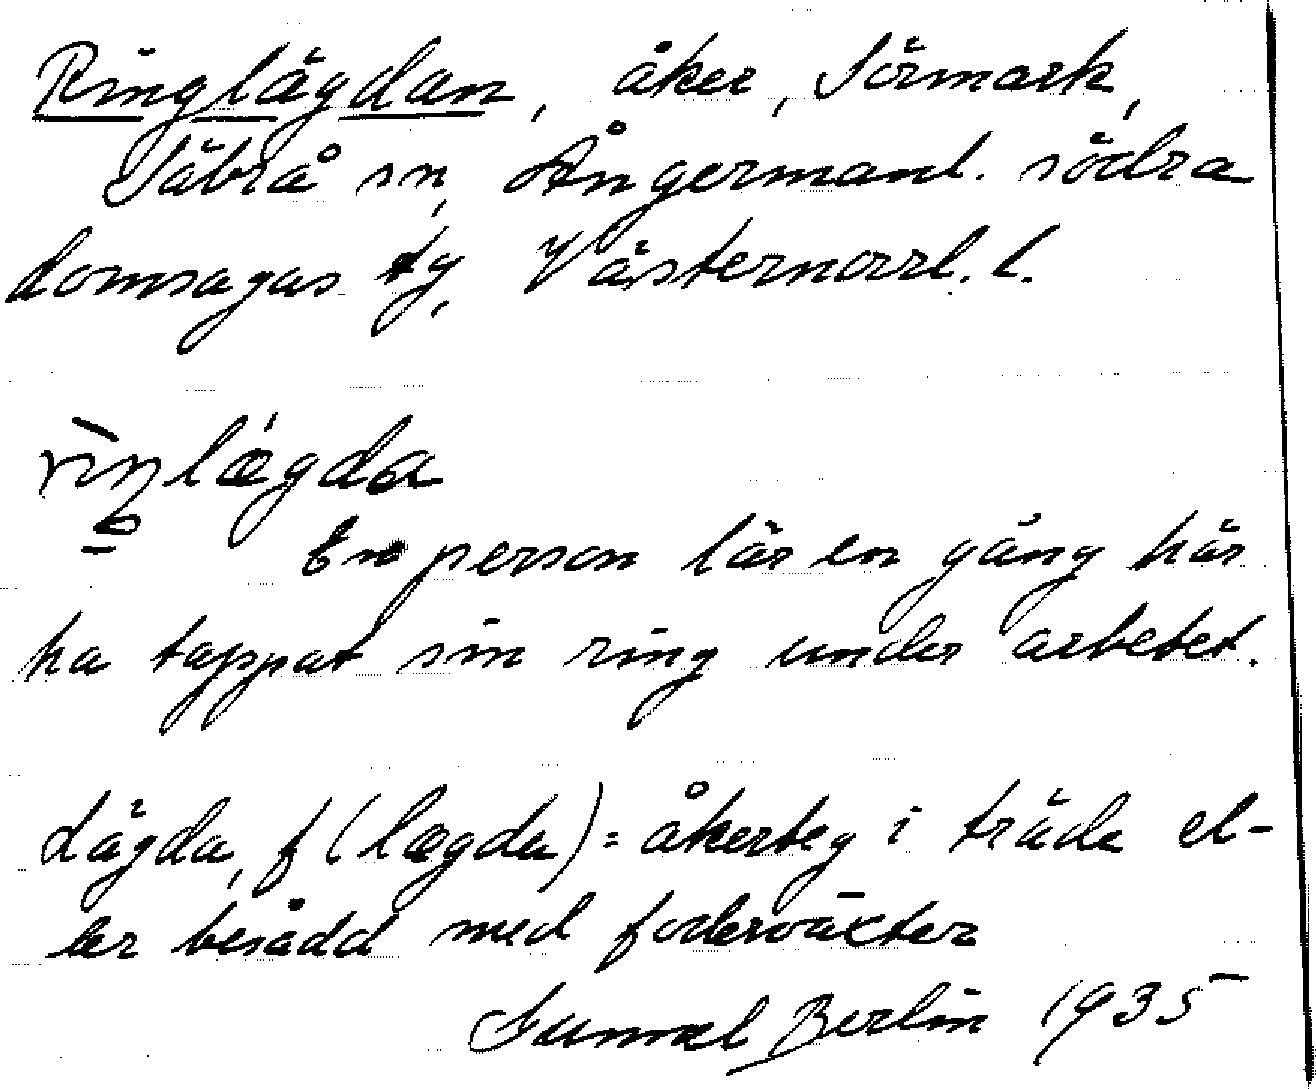 Ringlägdan, åker, Sörmark,
Säbrå sn, Ångermanl. södra
domsagas tg, Västernorrl. l.
rìŋlǽgda
En person lär en gång här
ha tappat sin ring under arbetet.
Lägda, f (lægda) = åkerteg i träda el-
ler besådd med foderväxter
Gunnel Berlin 1935